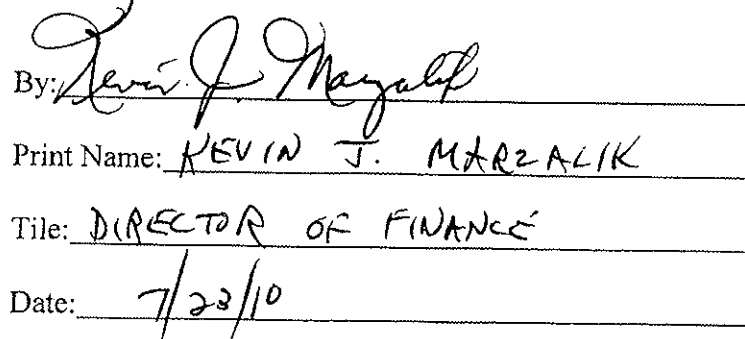 By: Kevin J. Marzalik
Print Name: KEVIN J. MARZALIK
Tile: DIRECTOR OF FINANCE
Date: 7/23/10